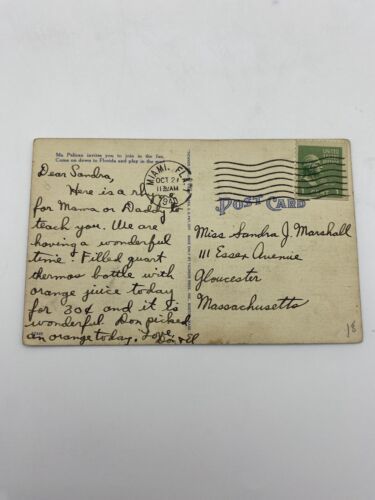 Mr. Pelican invites you to join in the fun.
Come on down to Florida and play in the sun!
Dear Sandra,
Here is a rh
for Mama or Daddy to
teach you. We are
having a wonderful
time. Filled quart
thermos bottle with
orange juice today
for 30¢ and it is
wonderful. Don picked
an orange today. Love,
Don & El
MIAMI, FLA.
OCT 27
11 AM
POST CARD
UNITED
Miss Sandra J. Marshall
111 Essex Avenue
Gloucester
Massachusetts
18